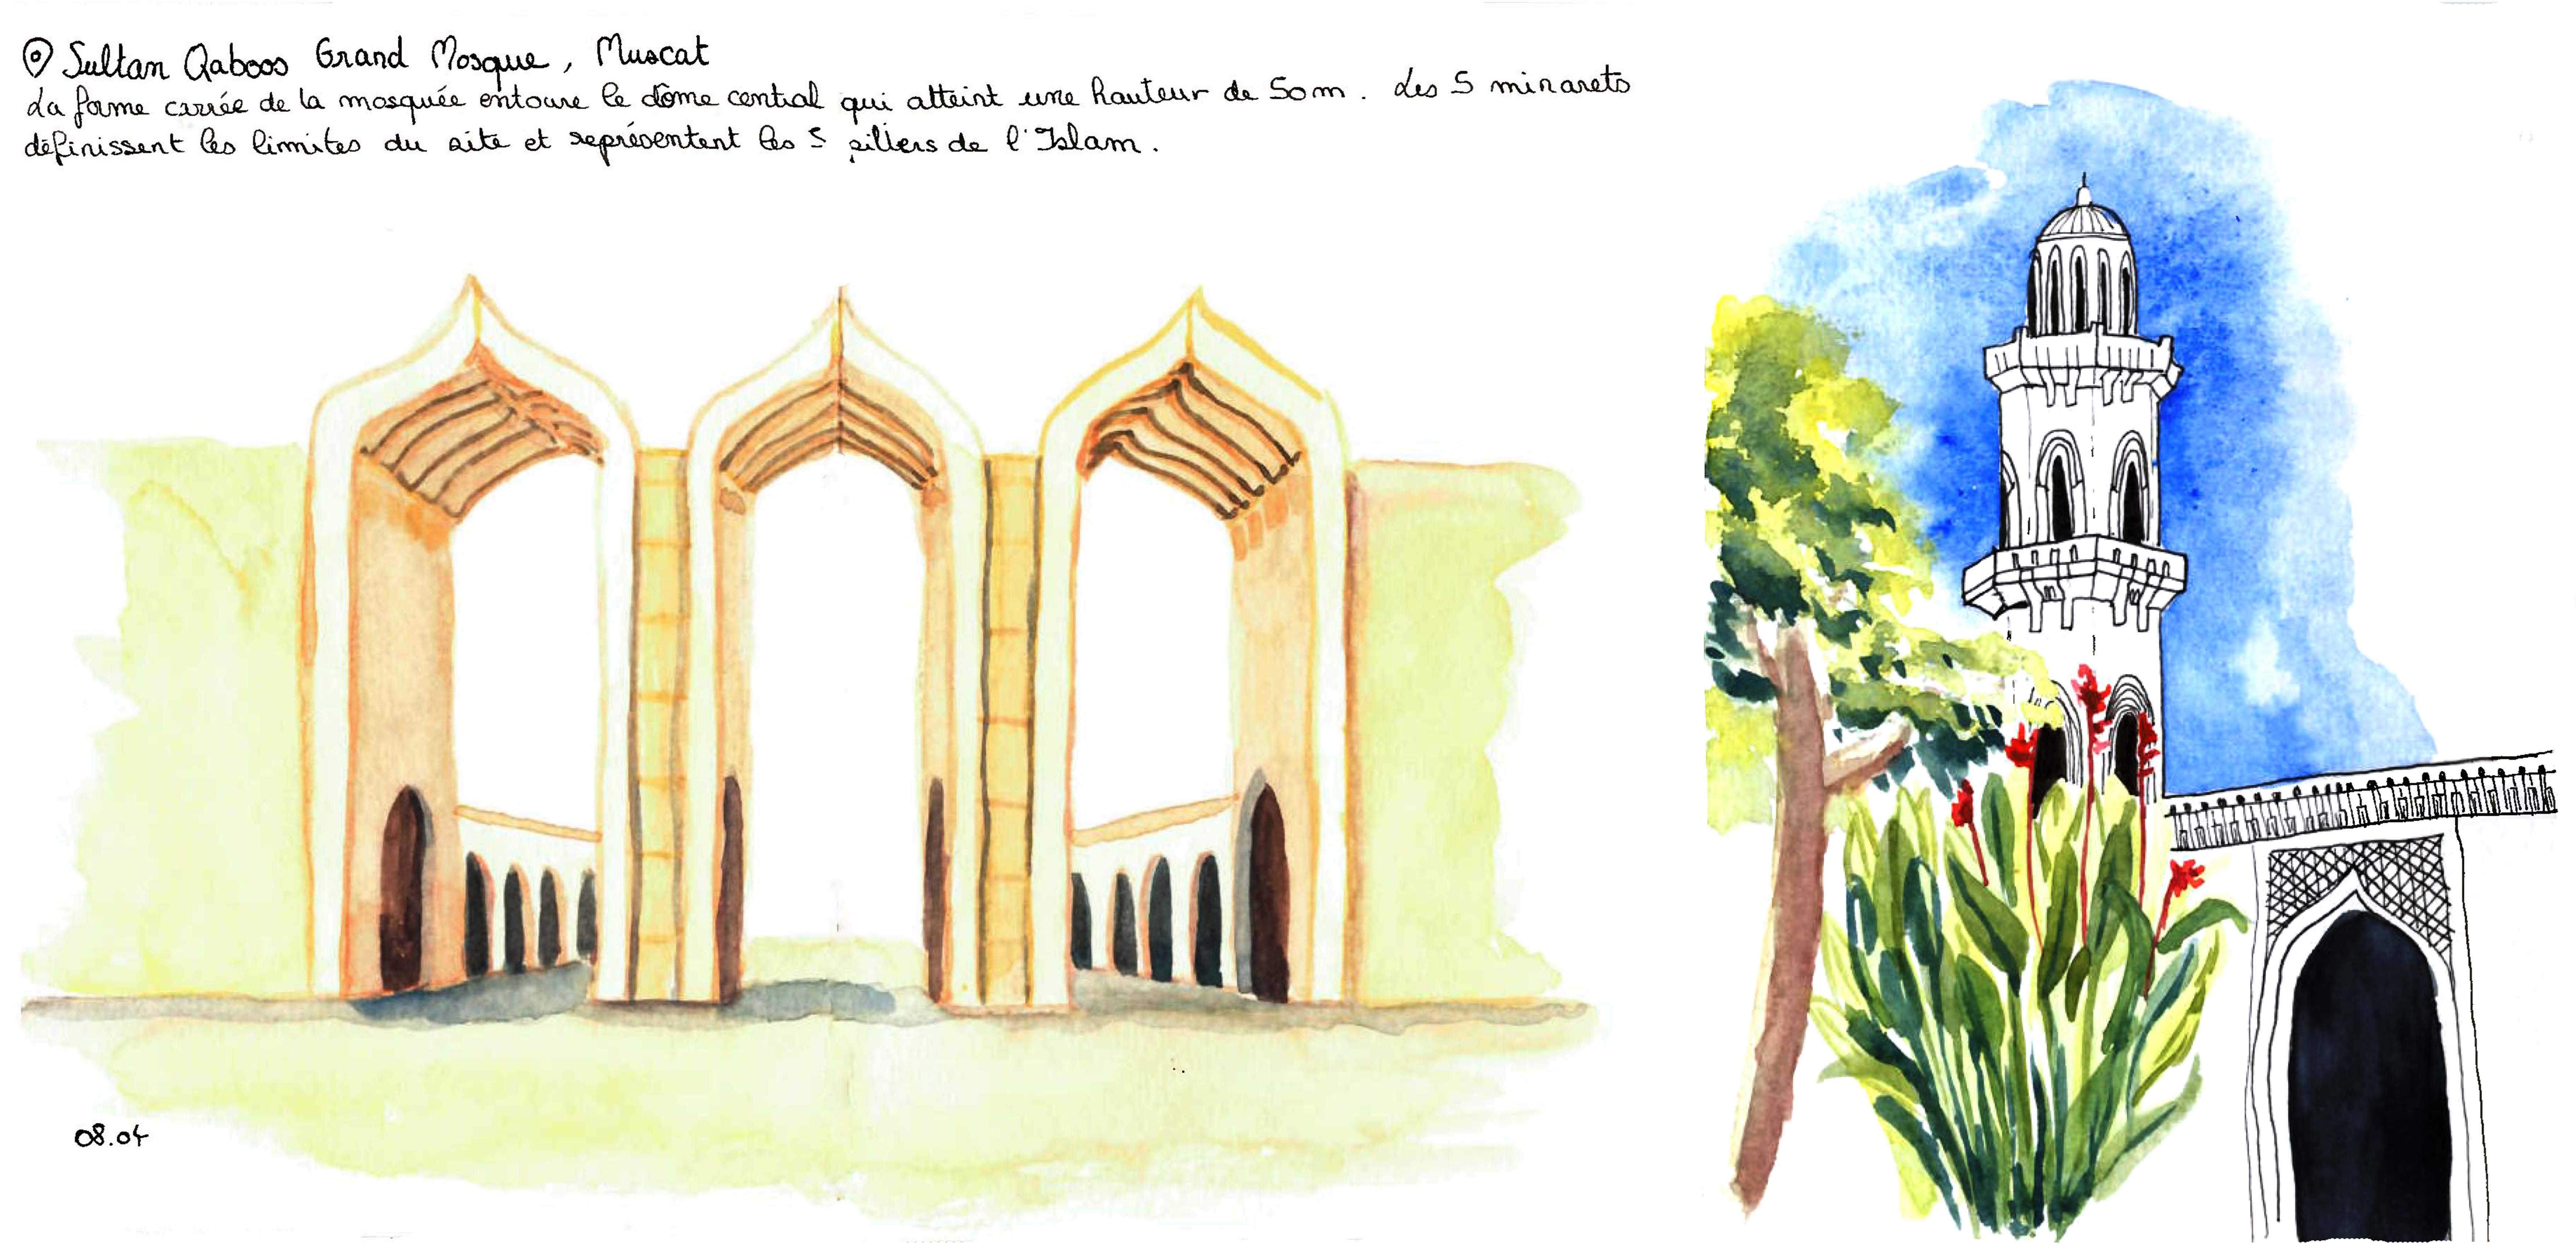 Sultan Qaboos Grand Mosque, Muscat
La forme carrée de la mosquée entoure le dôme central qui atteint une hauteur de 50m. Les 5 minarets
définissent les limites du site et représentent les 5 piliers de l'Islam.
08.04